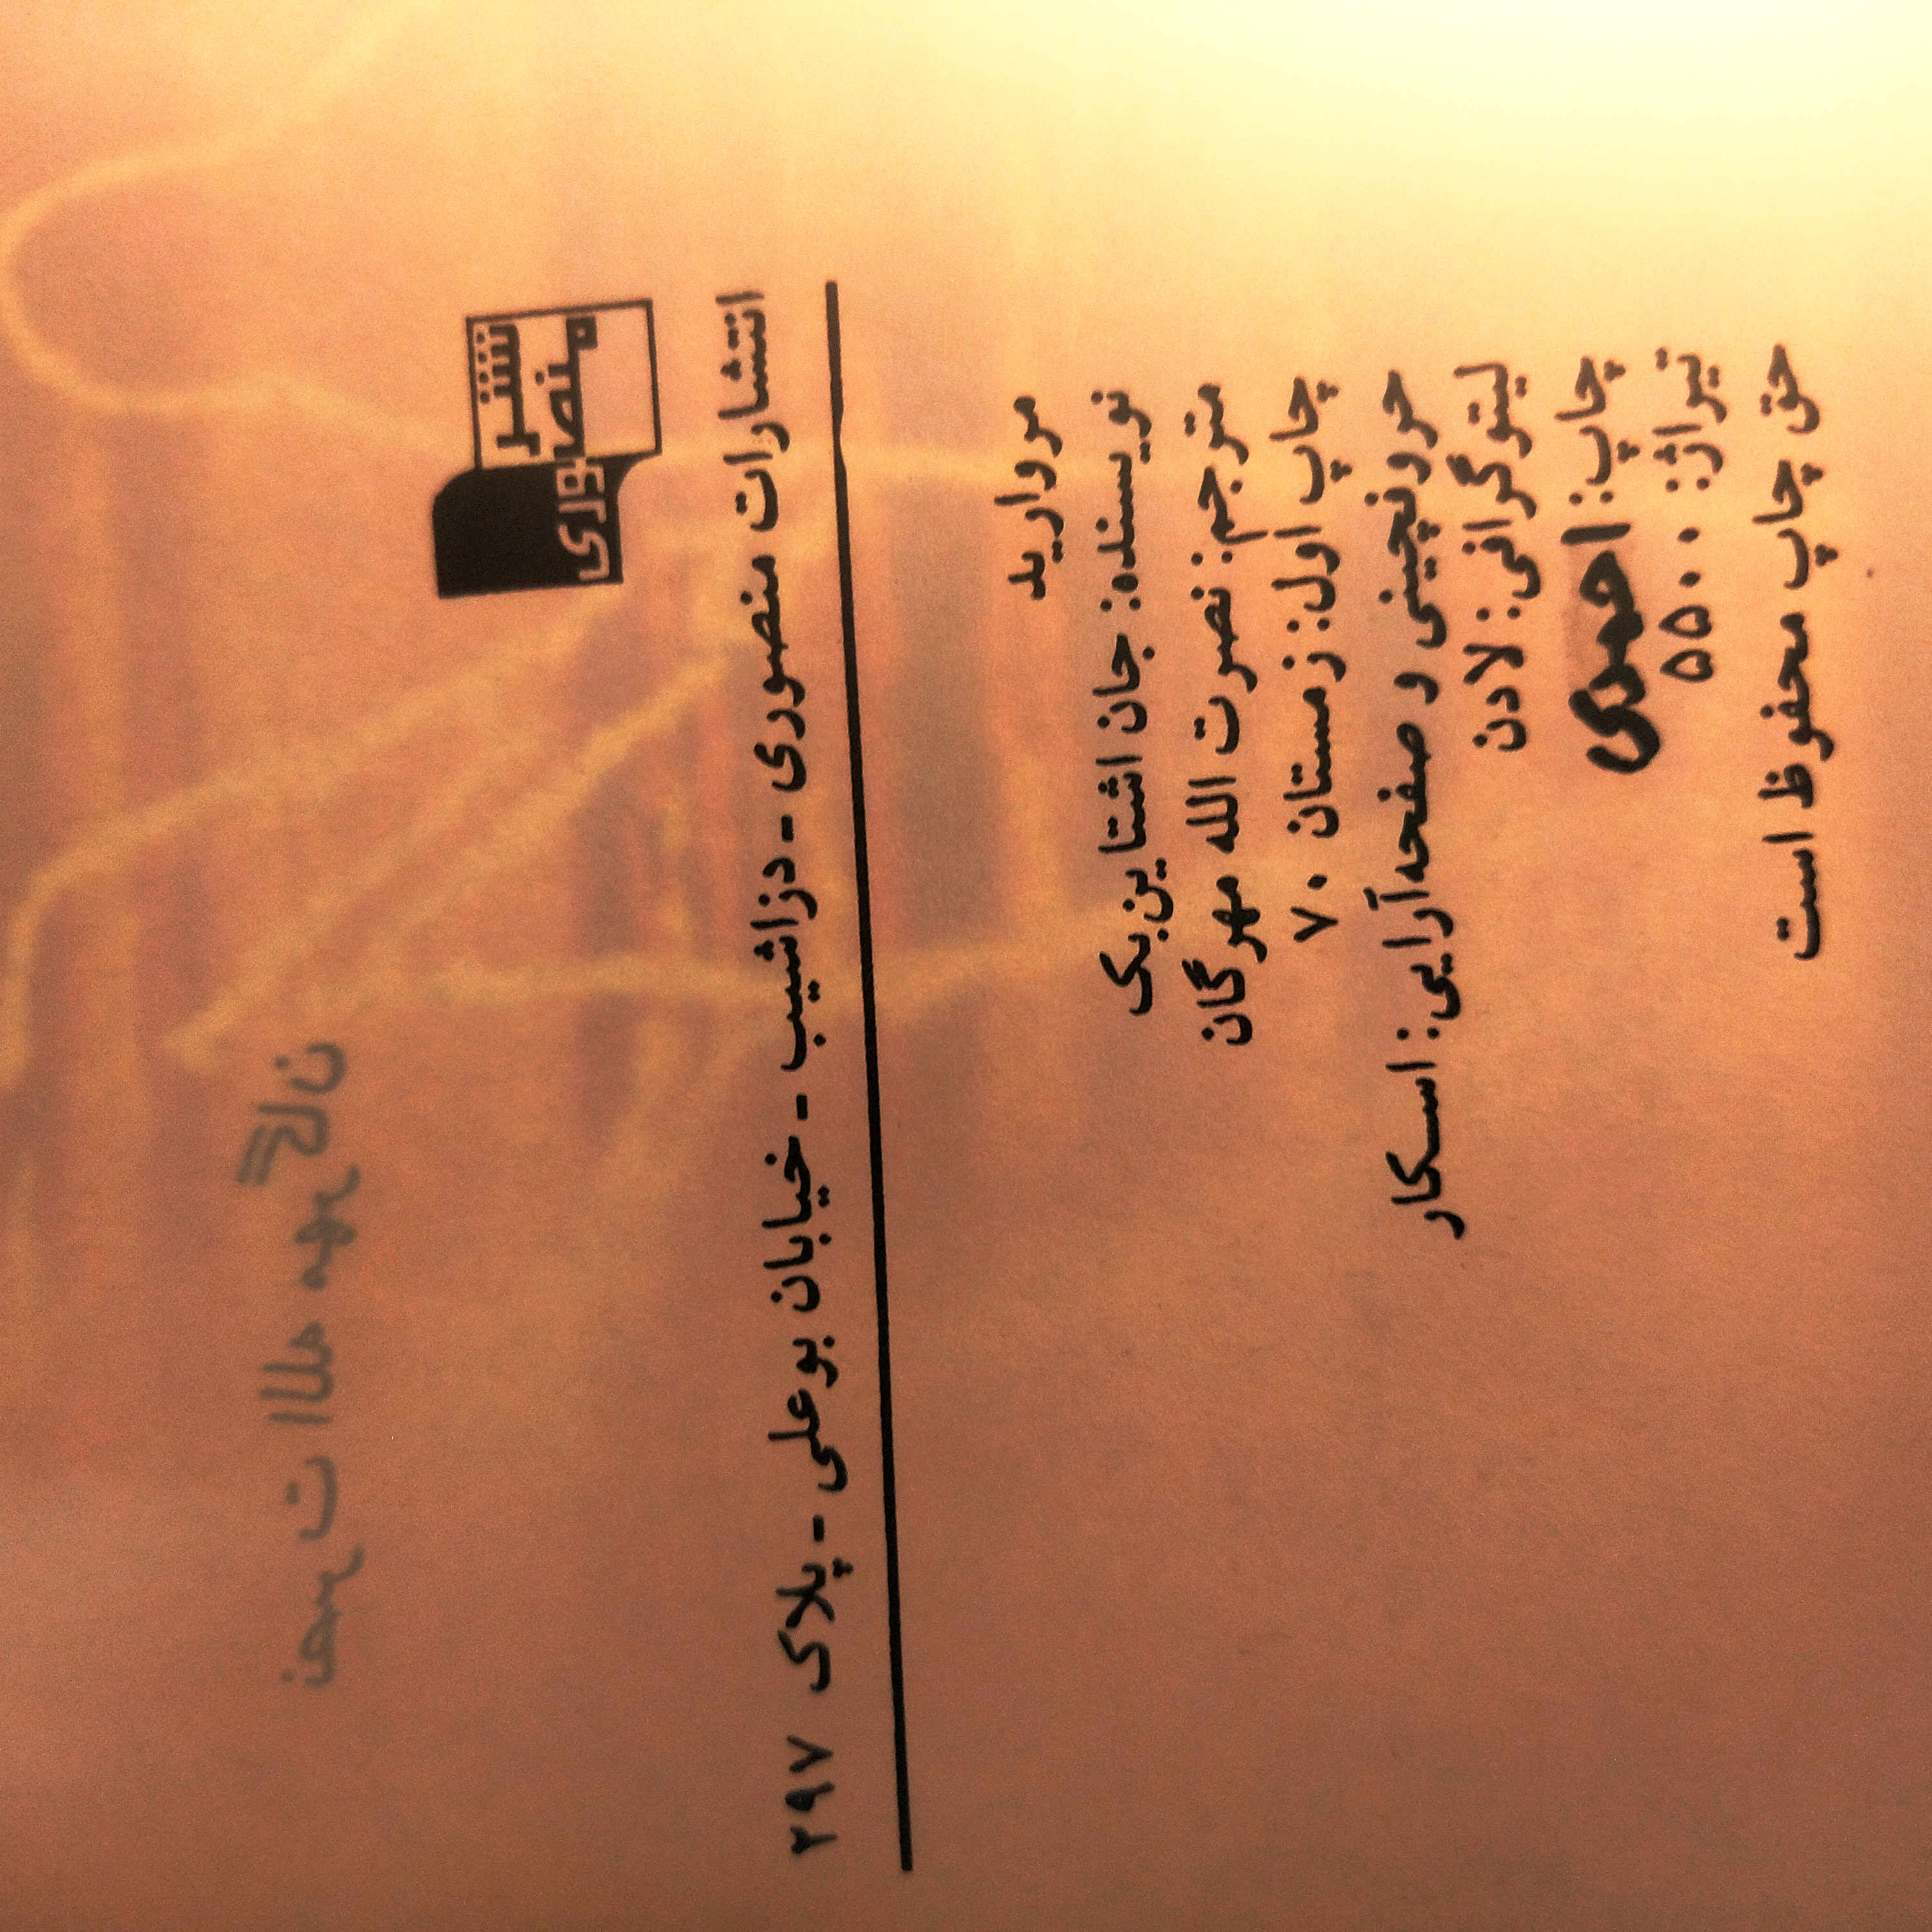 نشر
منصوری
انتشارات منصوری - دزاشیب - خیابان بوعلی - پلاک ۲۹۷
مروارید
نویسنده: جان اشتاین بک
مترجم: نصرت الله مهرگان
چاپ اول: زمستان ۷۰
حروفچینی و صفحه‌آرایی: اسکار
لیتوگرافی: لادن
چاپ: احمدی
تیراژ: ۵۵۰۰
حق چاپ محفوظ است
نصرت الله مهرگان